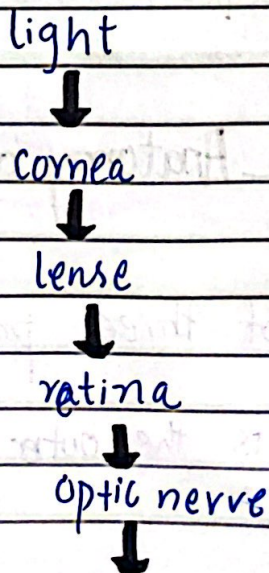 light
cornea
lense
retina
optic nerve